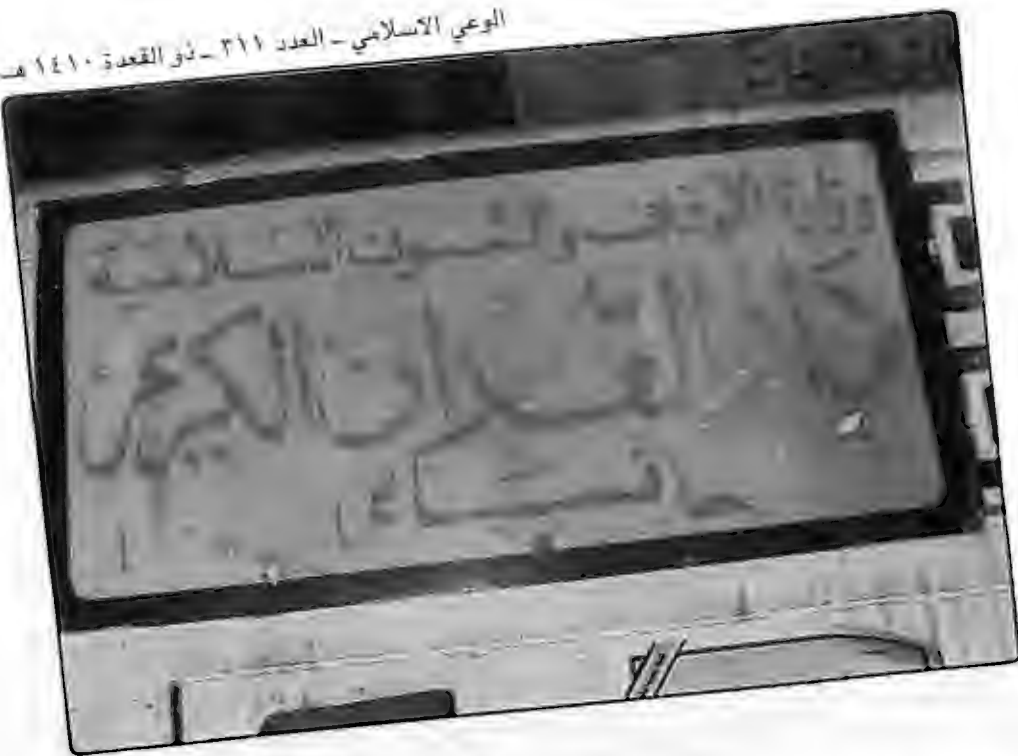 الوعي الاسلامي - العدد ٣١١ - ذو القعدة ١٤١٠ هـ
وزارة الاوقاف والشئون الاسلامية
دار القرآن الكريم
نساء